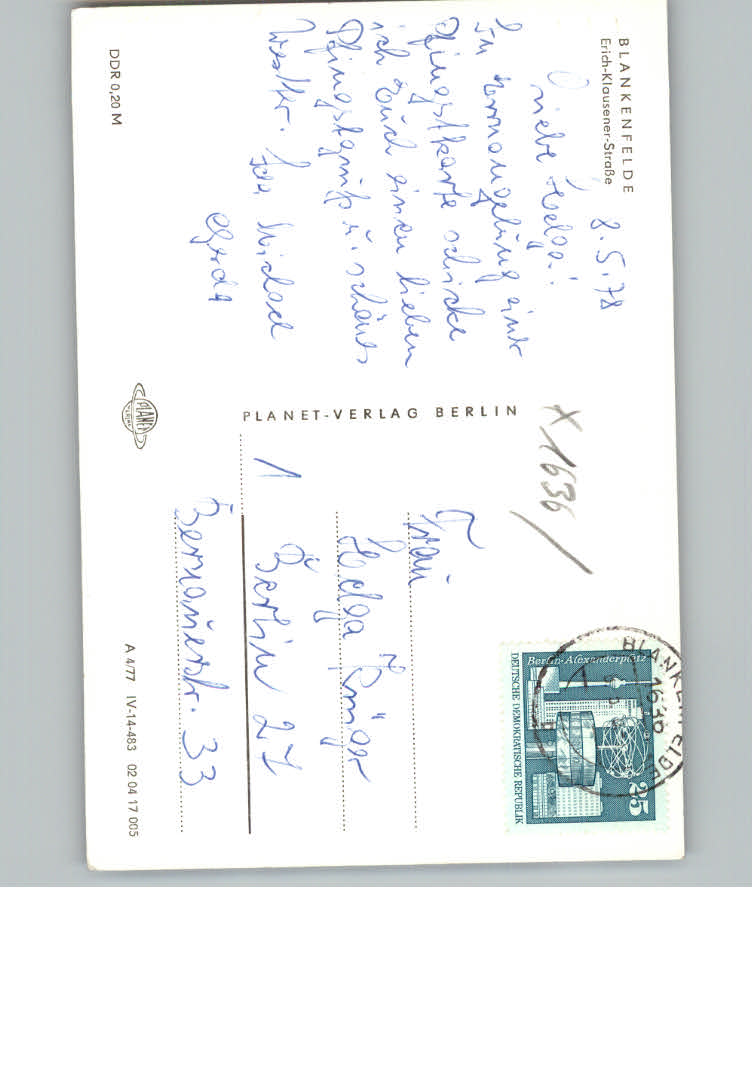 BLANKENFELDE
Erich-Klausener-Straße
8.5.78
Liebe Helga!
In Ermangelung einer
Pfingstkarte schicke
ich Euch einen lieben
Pfingstgruß u. schönes
Wetter.
Gerda
DDR 0,20 M
PLANET-VERLAG BERLIN
PLANET
VERLAG
X 1636/
Frau
Helga Krüger
1 Berlin 27
Bernauerstr. 33
A 4/77 IV-14-483 02 04 17 005
Berlin-Alexanderplatz
DEUTSCHE DEMOKRATISCHE REPUBLIK
25
BLANKENFELDE
1636